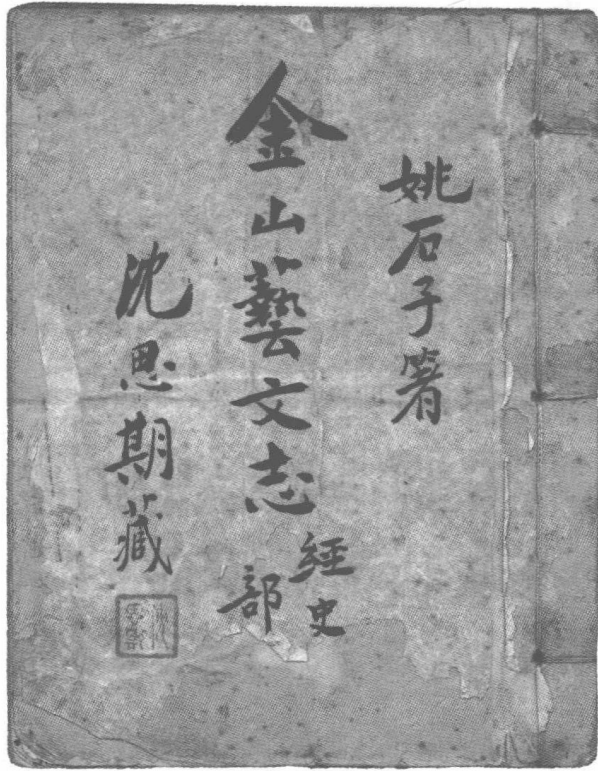 姚石子箸
金山藝文志
經史
部
沈思期藏